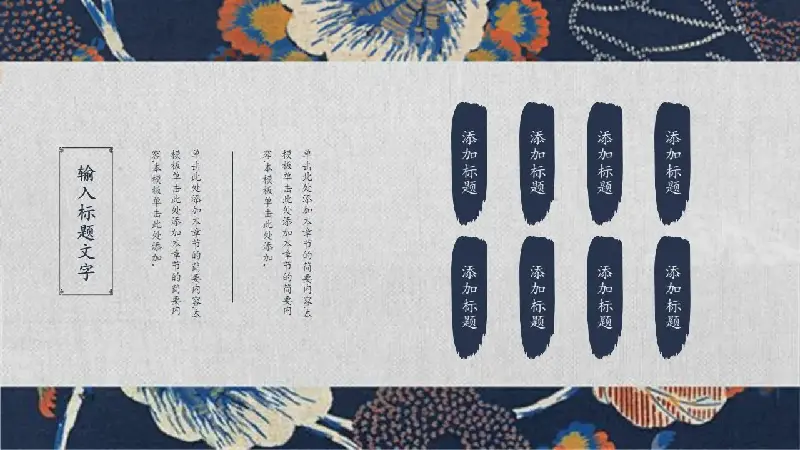 输入标题文字
单击此处添加本章节的简要内容本
模板单击此处添加本章节的简要内
容本模板单击此处添加。
单击此处添加本章节的简要内容本
模板单击此处添加本章节的简要内
容本模板单击此处添加。
添加标题
添加标题
添加标题
添加标题
添加标题
添加标题
添加标题
添加标题